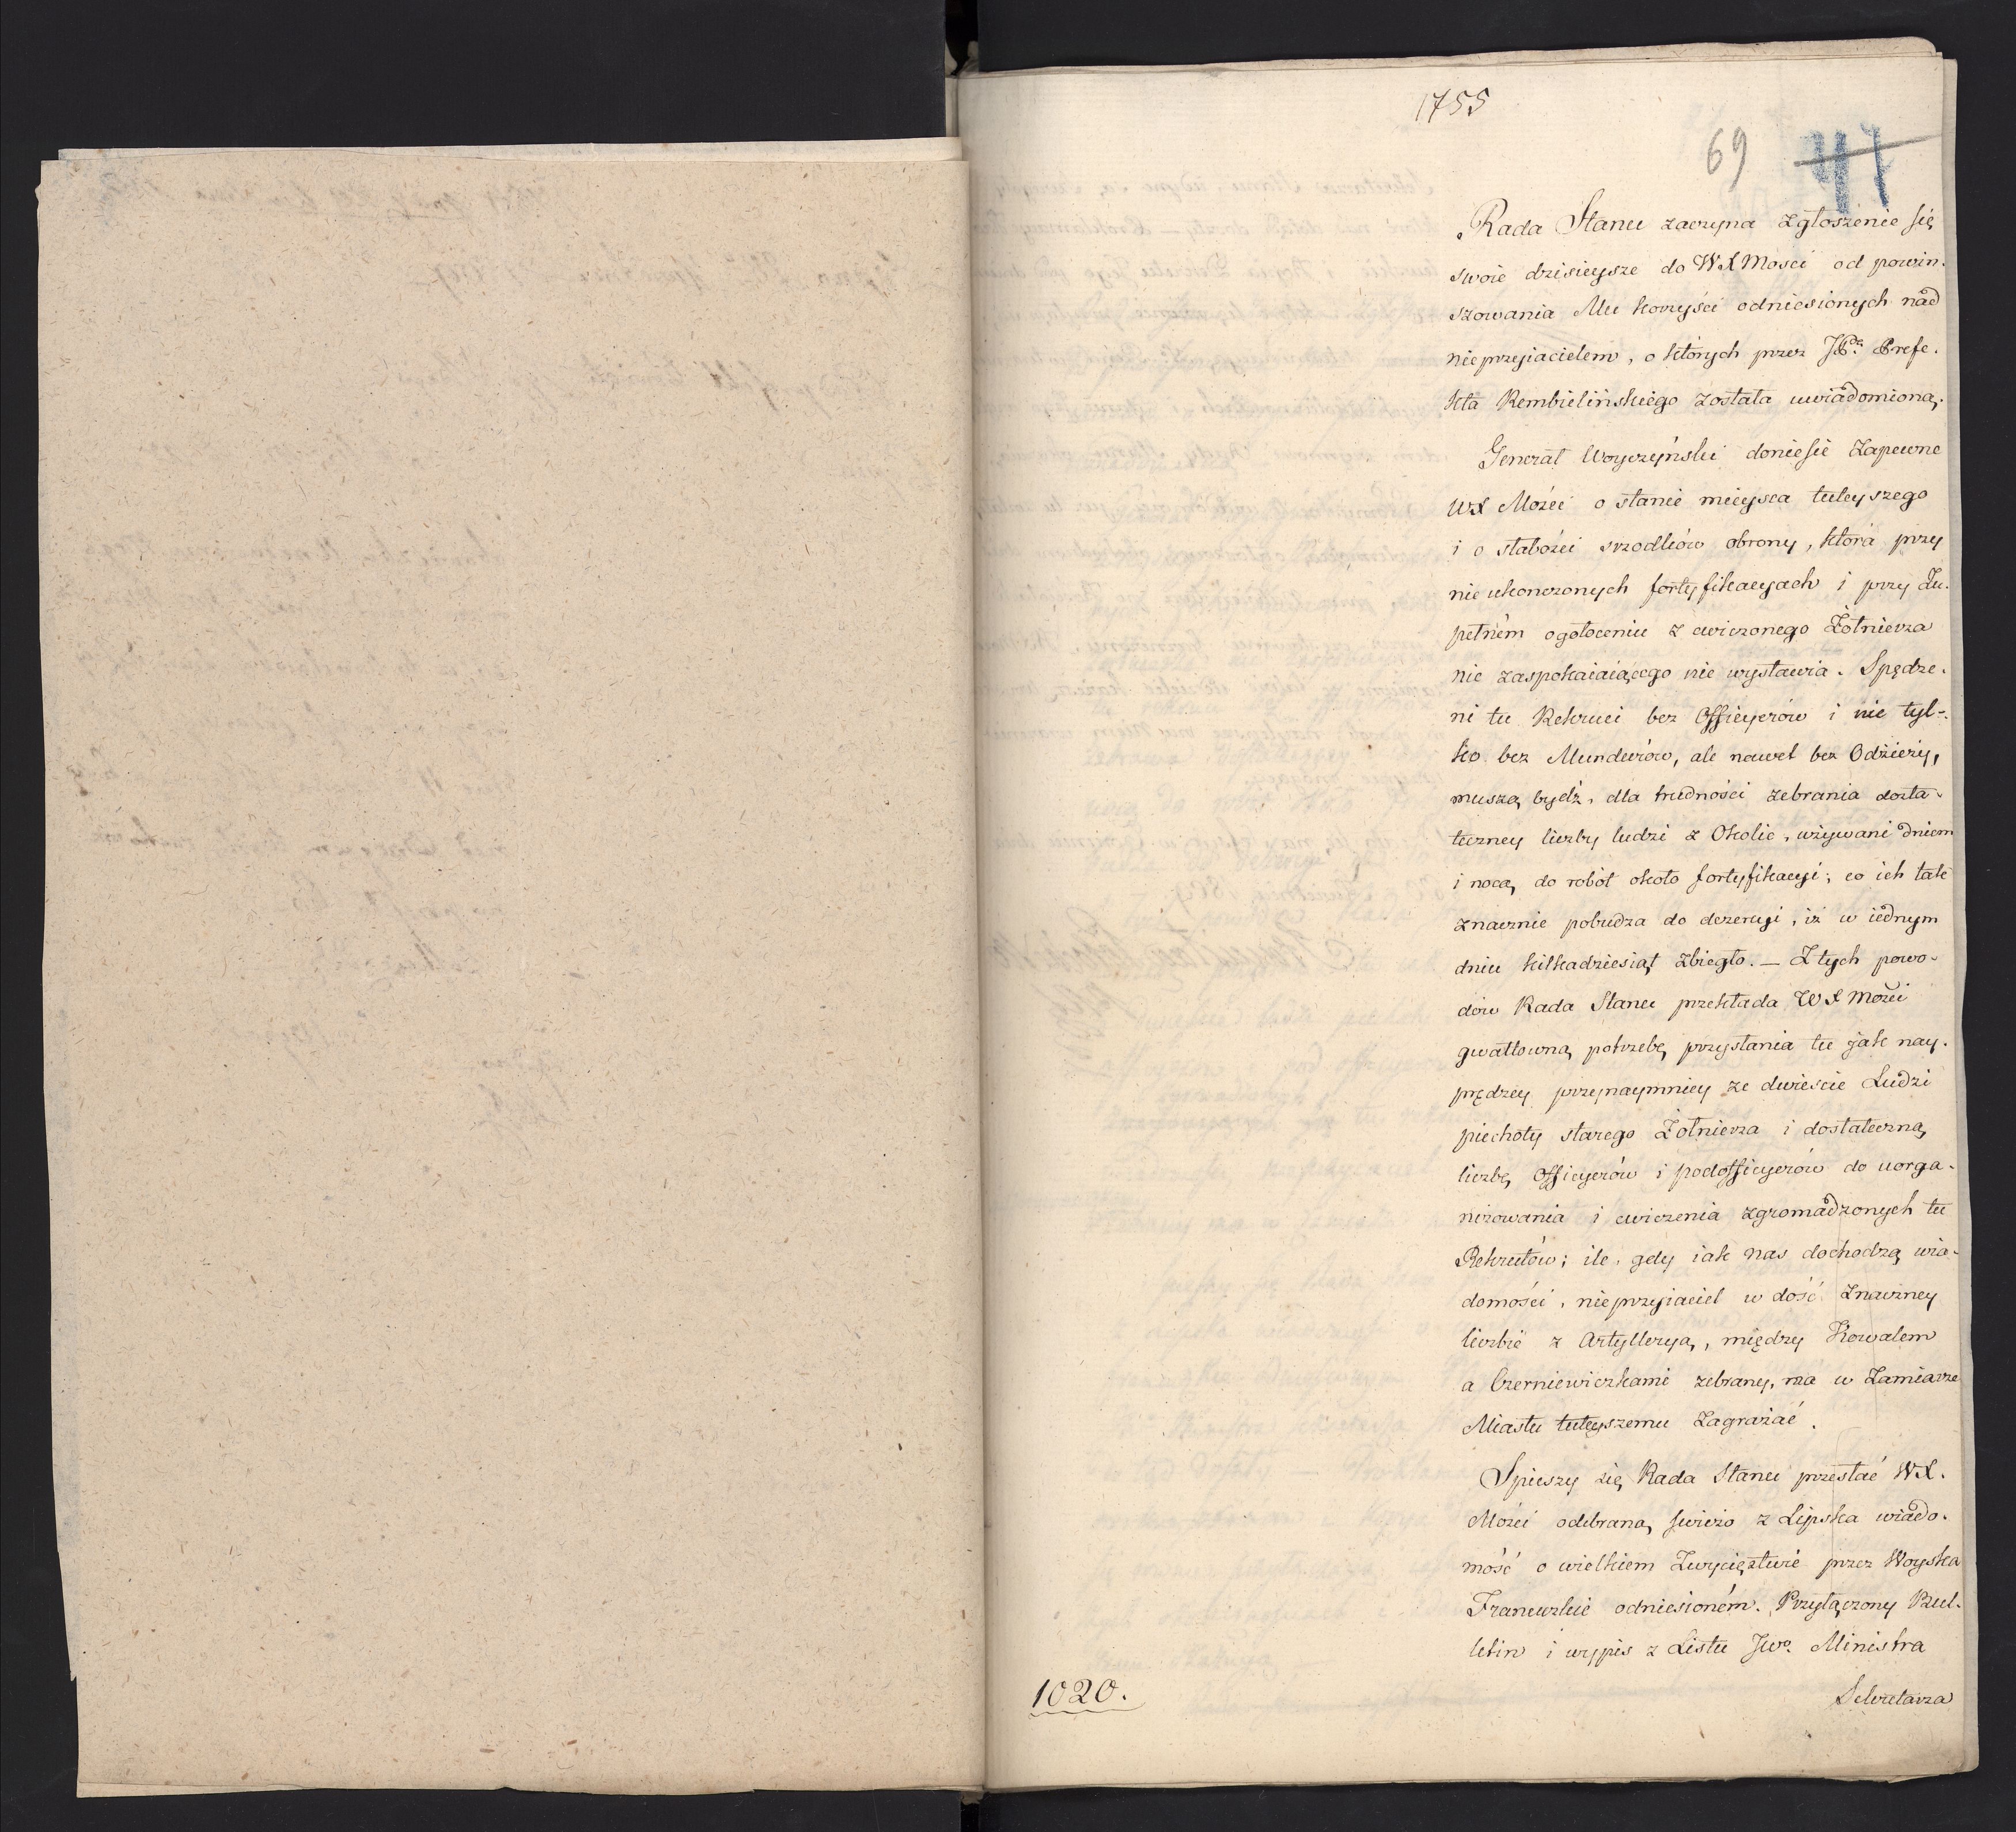 1755
69 47
Rada Stanu zaczyna zgłoszenie się
swoie dzisieysze do WX Mości od powin.
szowania Mu korzyści odniesionych nad
nieprzyiacielem, o których przez JPa. Prefe.
kta Rembielińskiego została uwiadomioną.
Generał Woyczyński doniesie zapewne
WX Mości o stanie mieysca tuteyszego
i o słabości srzodków obrony, która przy
nieukonczonych fortyfikacyach i przy zu.
pełném ogołoceniu z cwiczonego Żołnierza
nic zaspokaiaiącego nie wystawia. Spędze.
ni tu Rekruci bez Officyerów i nie tyl-
ko bez Mundurów, ale nawet bez Odzieży,
muszą bydź, dla trudności zebrania dosta-
teczney liczby ludzi z Okolic, używani dniem
i nocą do robót około fortyfikacyi; co ich tak
znacznie pobudza do dezercyi, iż w iednym
dniu kilkadziesiąt zbiegło. — Z tych powo-
dów Rada Stanu przekłada WX Mości
gwałtowną potrzebę przysłania tu jak nay.
prędzey przynaymniey ze dwieście Ludzi
piechoty starego Żołnierza i dostateczną
liczbę Officyerów i podofficyerów do uorga-
nizowania i cwiczenia zgromadzonych tu
Rekrutów; ile, gdy iak nas dochodzą wia-
domości, nieprzyiaciel w dość znaczney
liczbie z Artylleryą, między Kowalem
a Czerniewiczkami zebrany, ma w zamiarze
Miastu tuteyszemu zagrażać.
Spieszy się Rada Stanu przesłać WX.
Mości odebraną świeżo z Lipska wiado.
mość o wielkiem Zwycięztwie przez Woyska
Francuzkie odniesioném. Przyłączony Bul.
letin i wypis z Listu JWo. Ministra
1020. Sekretarza